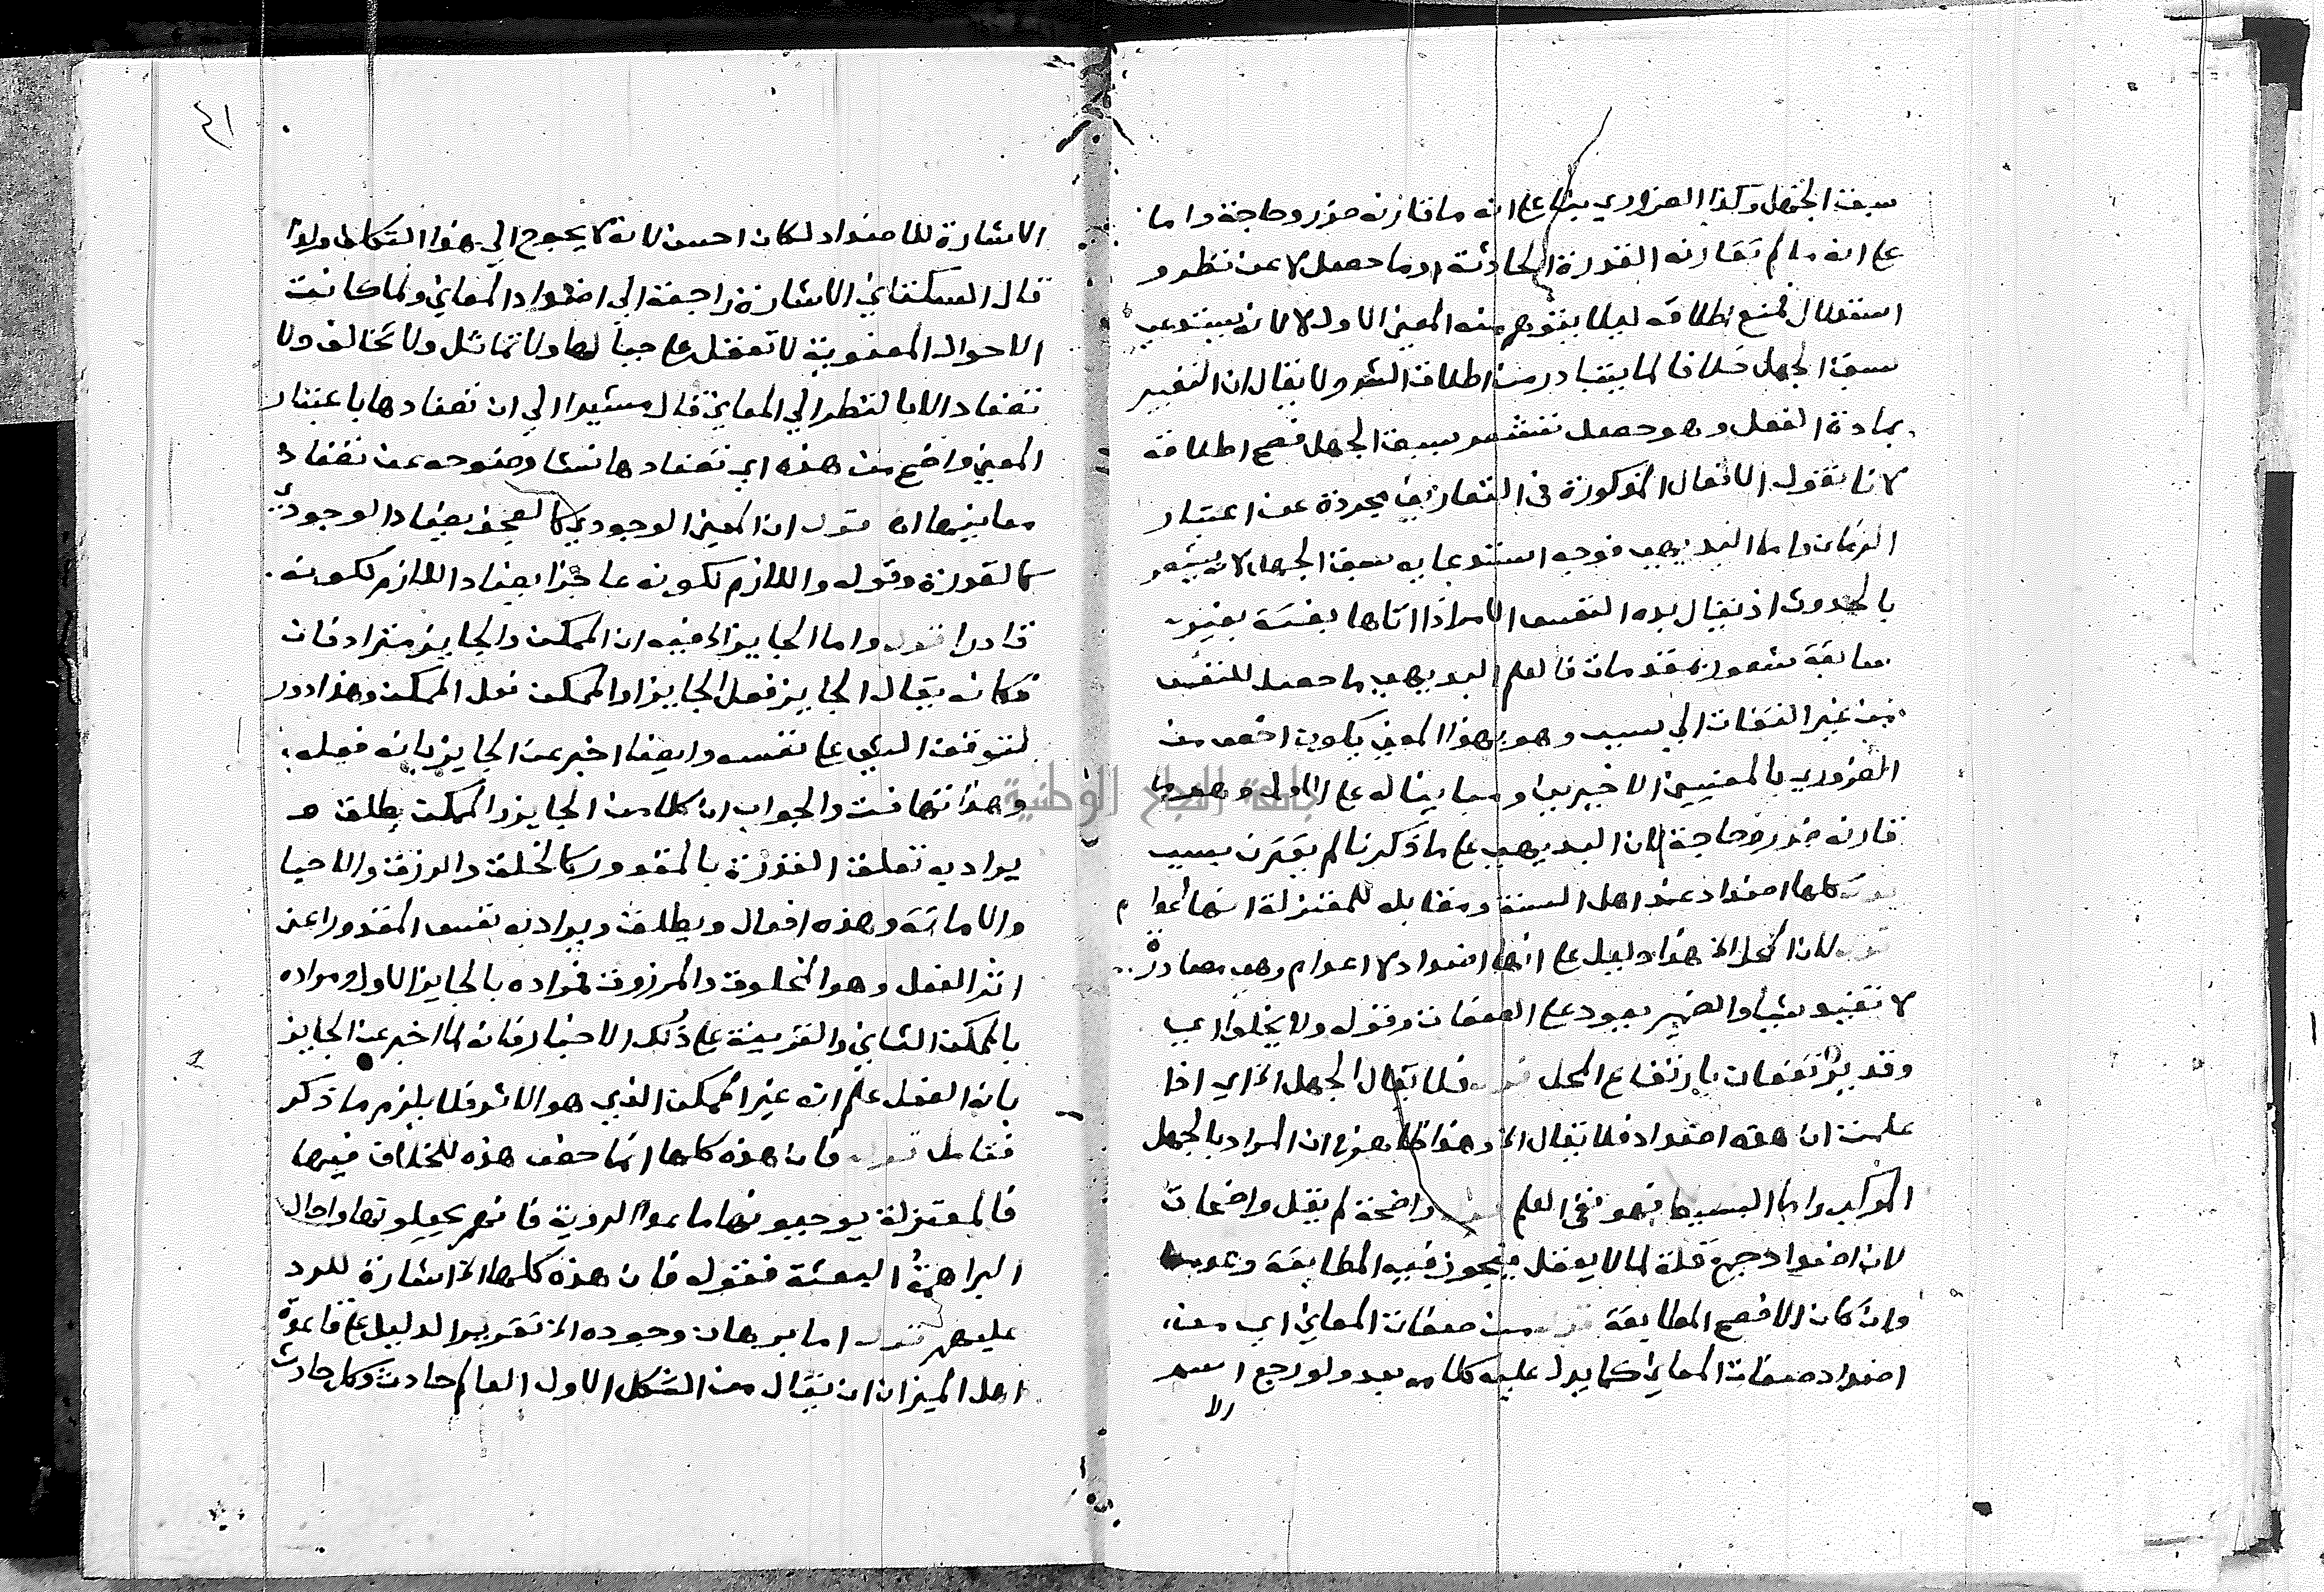 سبق الجهل وكذا الضروري بناء على انه ما قارنه ضرر وحاجة واما
على انه ما لم تقارنه القدرة الحادثة او ما حصل لا عن نظر و
استدلال فمنع اطلاقه ليلا يتوهم منه المعنى الاول لا لانه يستدعي
سبق الجهل خلافا لما يتبادر من اطلاق الشر ولا يقال ان التعبير
بمادة الفعل وهو حصل تشعر بسبق الجهل فصح اطلاقه
لانا نقول الافعال المذكورة في التعاريف مجردة عن اعتبار
الزمان واما البديهي فوجه استدعايه سبق الجهل لانه يشعر
بالحدوث اذ يقال بده النفس الامر اذا اتاها بغتة بغير
سابقة شعور بمقدمات فالعلم البديهي ما حصل للنفس
من غير التفات الي سبب وهو بهذا المعنى يكون اخص من
الضروري بالمعنيين الاخيرين ومباينا له على الاول وهو ما
قارنه ضرر وحاجة لان البديهي على ما ذكرنا لم يقترن بسبب
كلها اضداد عند اهل السنة ومقابله للمعتزلة انها اعدام
قوله لان المحل الخ هذا دليل على انها اضداد لا اعدام وهي مصادرة
لا تفيد شيأ والضمير يعود على الصفات وقوله ولا يخلوا اي
وقد يرتفعان بارتفاع المحل قوله فلا يقال الجهل الخ اي اذا
علمت ان هذه اضداد فلا يقال الخ وهذا ظاهر في ان المراد بالجهل
المركب واما البسيط فهو نفي العلم قوله واضحة لم يقل واضحات
لان اضداد جمع قلة لما لا يعقل يجوز فيه المطابقة وعدمها
وان كان الافصح المطابقة قوله من صفات المعاني اي من
اضداد صفات المعاني كما يدل عليه كلامه بعد ولو رجع اسم
الا
٤١
الاشارة للاضداد لكان احسن لانه لا يحوج الي هذا التكلف ولذا
قال السكتاني الاشارة راجعة الي اضداد المعاني ولما كانت
الاحوال المعنوية لا تعقل على حيالها ولا تماثل ولا تخالف ولا
تضاد الا بالنظر الي المعاني قال مشيرا الي ان تضادها باعتبار
المعنى واضح من هذه اي تضادها نشا وضوحه عن تضاد
معانيها اذ تقول ان المعنى الوجودي كالعجز يضاد الوجودي
كالقدرة وقوله واللازم لكونه عاجزا يضاد اللازم لكونه
قادرا قوله واما الجايز الخ فيه ان الممكن والجايز مترادفان
فكانه يقال الجايز فعل الجايز او الممكن فعل الممكن وهذا دور
لتوقف الشي على نفسه وايضا اخبر عن الجايز بانه فعله
وهذا تهافت والجواب ان كلا من الجايز والممكن يطلق و
يراد به تعلق القدرة بالمقدور كالخلق والرزق والاحيا
والاماتة وهذه افعال ويطلق ويراد به نفس المقدور اعني
اثر الفعل وهو المخلوق والمرزوق فمراده بالجايز الاول ومراده
بالممكن الثاني والقرينة على ذلك الاخبار فانه لما اخبر عن الجايز
بانه الفعل علم انه غير الممكن الذي هو الاثر فلا يلزم ما ذكر
فتامل قوله فان هذه كلها انما خص هذه للخلاف فيها
فالمعتزلة يوجبونها ما عدا الروية فانهم يحيلونها واحال
البراهمة البعثة فقوله فان هذه كلها الخ اشارة للرد
عليهم قوله اما برهان وجوده الخ تقرير الدليل على قاعدة
اهل الميزان ان يقال من الشكل الاول العالم حادث وكل حادث
جامعة النجاح الوطنية